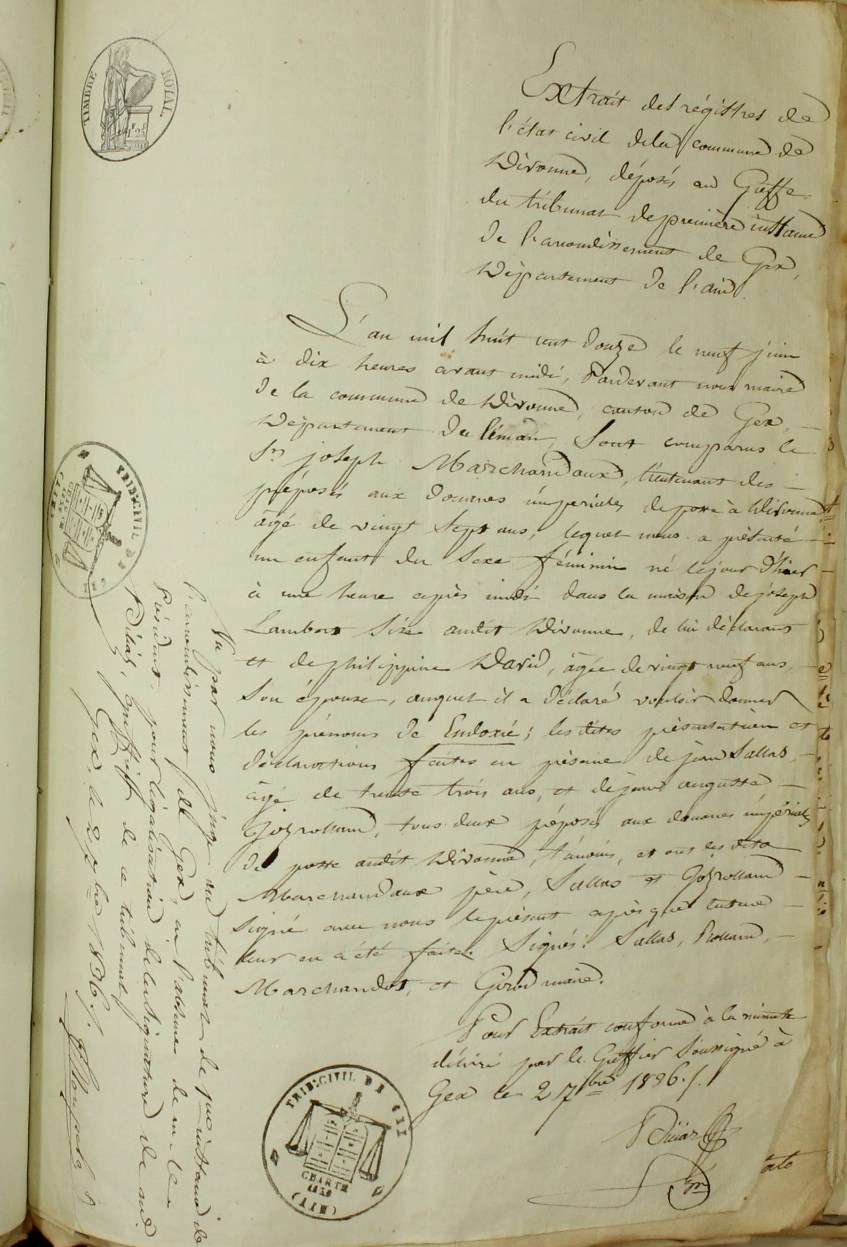 TIMBRE ROYAL
Extrait des régistres de
l'état civil dela commune de
Divonne, déposés au Greffe
du tribunal depremière instance
De l'arrondissement de Gex,
Département de l'ain.
L'an mil huit cent douze le neuf juin
à dix heures avant midi, Pardevant nous maire
De la commune de Divonne, canton de Gex,
Département du léman, Sont comparus le
Sr. joseph Marchandaux, lieutenant des
préposés aux douanes impériales deposte à Divonne
âgé de vingt Sept ans, lequel nous a présenté
un enfant du Sexe féminin né lejour d'hier
à une heure après midi dans la maison dejoseph
Lambert Sise audit Divonne, de lui déclarant
et dephilippine David, âgée de vingt neuf ans,
Son épouse, auquel il a déclaré vouloir donner
les prénoms de Eudoxie; lesdites présentation et
déclarations faites en présence de jean Sallas,
âgé de trente trois ans, et dejean auguste
tous deux préposés aux douanes impériales
De poste audit Divonne, témoins, et ont lesdits
Marchandaux père, Sallas et
Signé avec nous leprésent après que lecture
leur en a été faite. Signés: Sallas, Rolland,
Marchandot, et Girod maire.
Pour Extrait conforme à la minute
délivré par le Greffier Soussigné à
Gex le 2 7bre 1836./.
TRIB: CIVIL DE GEX
CHARTE
1830
(AIN)
Vu par nous juge au tribunal de pre instance de
l'arrondissement de Gex, en l'absence de mr le
Président, pour législation delasignature de mr
greffier de ce tribunal
Gex, le 2 7bre 1836./.
TRIB: CIVIL DE GEX
CHARTE
1830
(AIN)